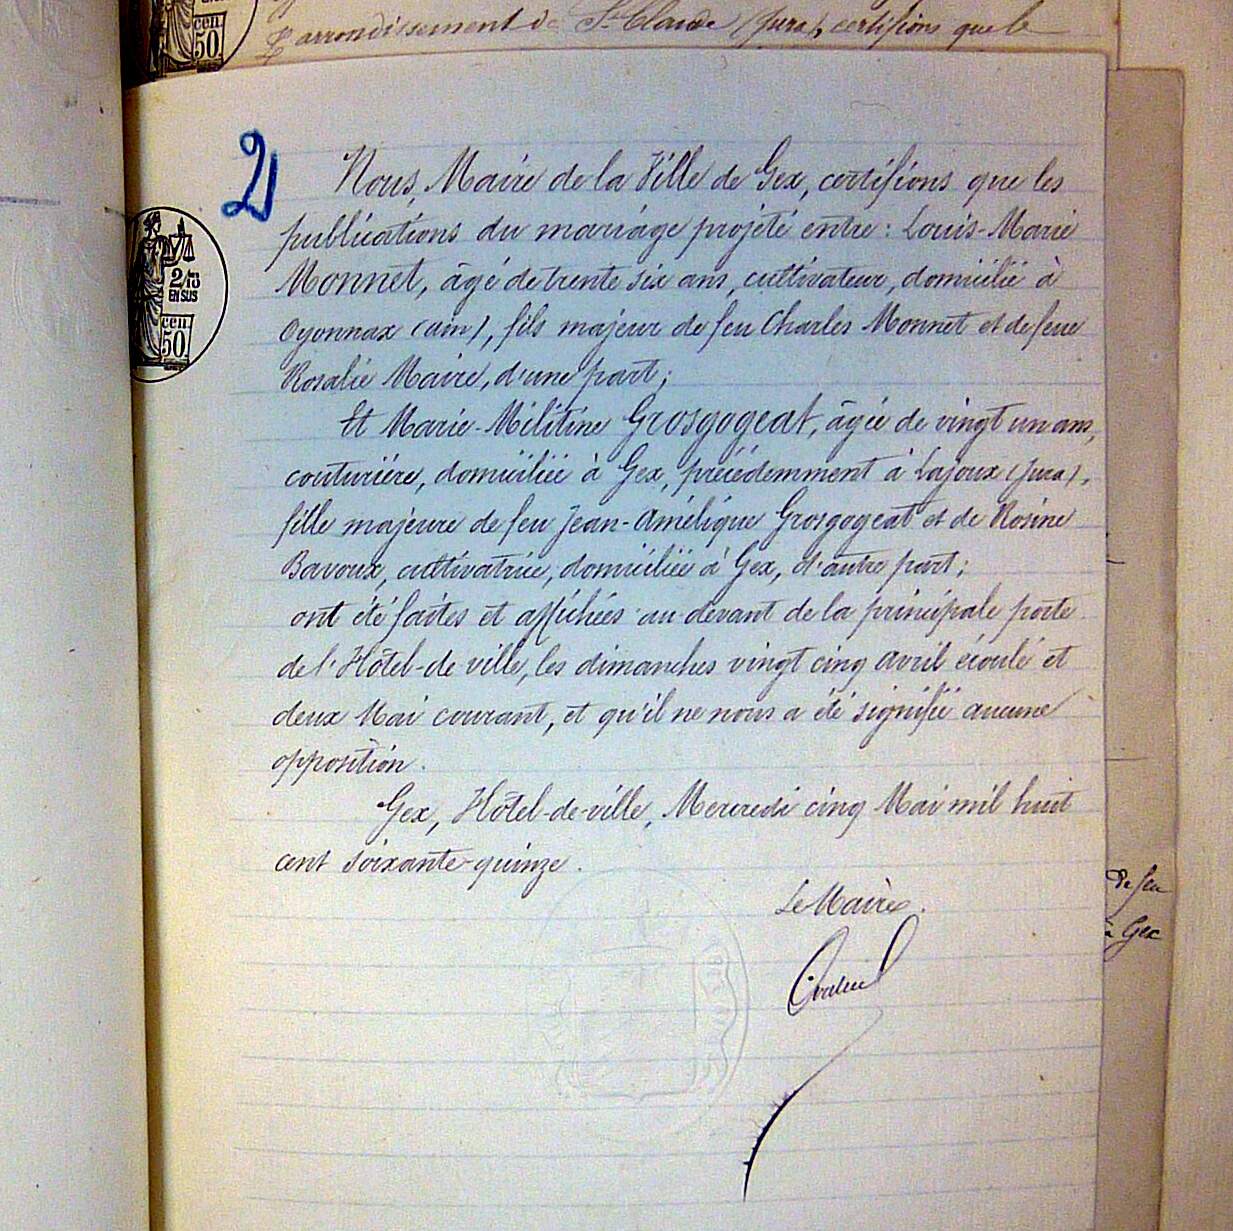 cen
50.
arrondissement de St Claude (Jura), certifions que le
2
Nous, Maire de la Ville de Gex, certifions que les
publications du mariage projeté entre : Louis-Marie
2/10
EN SUS
cen
50.
Monnet, âgé de trente six ans, cultivateur, domicilié à
Oyonnax (ain), fils majeur de feu Charles Monnet et de feue
Rosalie Maire, d'une part;
Et Marie-Militine Grosgogeat, âgée de vingt un ans,
couturière, domiciliée à Gex, précédemment à Lajoux (Jura),
fille majeure de feu Jean-Amélique Grosgogeat et de Rosine
Bavoux, cultivatrice, domiciliée à Gex, d'autre part;
ont été faites et affichées au-devant de la principale porte
de l'Hôtel-de ville, les dimanches vingt cinq avril écoulé et
deux Mai courant, et qu'il ne nous a été signifié aucune
opposition.
Gex, Hôtel-de-ville, Mercredi cinq Mai mil huit
cent soixante-quinze.
de feu
Le Maire.
à Gex